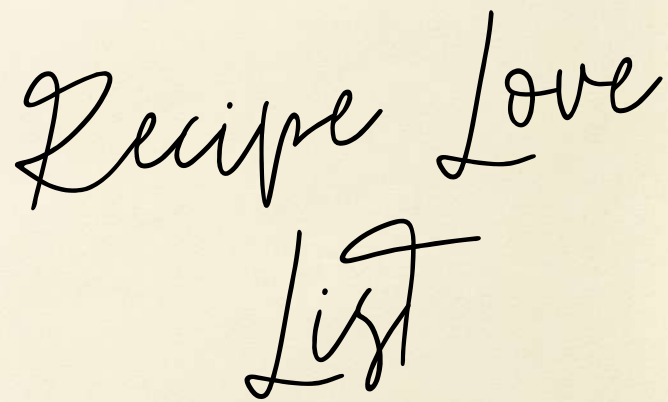 Recipe Love
List